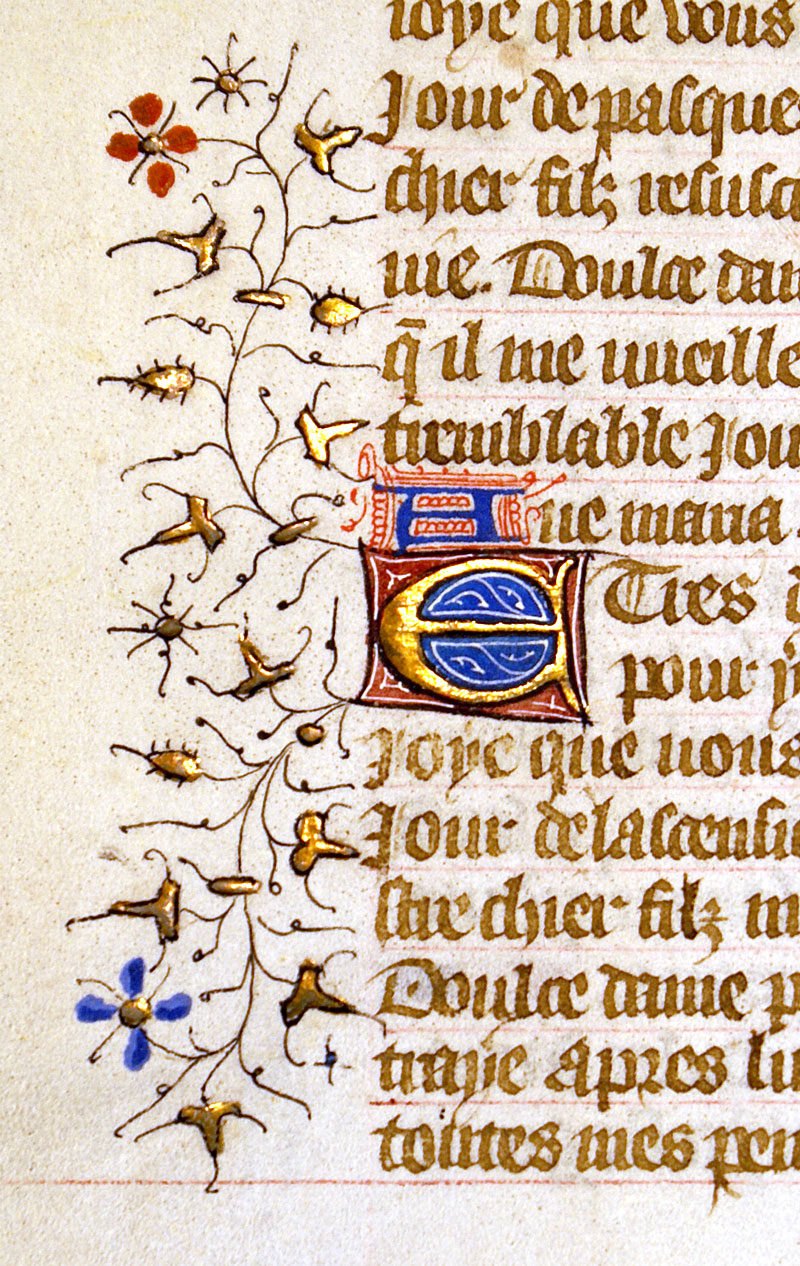 ioye que vous
Jour de pasques
chier filz resusc
uie. Doulce dam
q̄ il me vueille
tremblable Jou
Aue maria
E Tres d
pour y
Joye que vous
Jour delascensi
stre chier filz m
Doulce dame p
traye apres lu
toutes mes pen